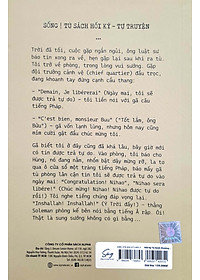 SỐNG | TỦ SÁCH HỒI KÝ - TỰ TRUYỆN
...
Trời đã tối, cuộc gặp ngắn ngủi, ông luật sư
báo tin xong ra về, hẹn gặp lại sau khi ra tù.
Tôi trở về phòng, trong lòng vui sướng. Gặp
đội trưởng cảnh vệ (chief quartier) đầu trọc,
đang khoanh tay đứng cạnh cầu thang:
– "Demain, Je libérerai" (Ngày mai, tôi sẽ
được trả tự do) – tôi liến nói với gã câu
tiếng Pháp.
– "C'est bien, monsieur Buu" ("Tốt lắm, ông
Bửu") – gã vốn lạnh lùng, nhưng hôm nay cũng
mỉm cười gật đầu chúc mừng tôi.
Gã biết tôi ở đây cũng đã khá lâu, bây giờ mới
có được tin trả tự do. Vào phòng, tôi báo cho
Hùng, nó đang nằm, nhổm bật dậy mừng rỡ, la
lên thông báo cho cả phòng giam, báo mấy gã
tù phòng lân cận tin tôi sẽ được trả tự do vào
ngày mai: "Congratulation! Nihao", "Nihao sera
liberé" (Chúc mừng! Nihao! Nihao được trả tự do
rồi!) Tôi nghe tiếng chúng dập vọng lại.
"Inshallah! Inshallah!" (Ý Trời đấy!) – thằng
Soleman phòng kế bên nói bằng tiếng Ả rập. Ôi!
Thật là sung sướng không thể tả.
CÔNG TY CỔ PHẦN SÁCH ALPHA